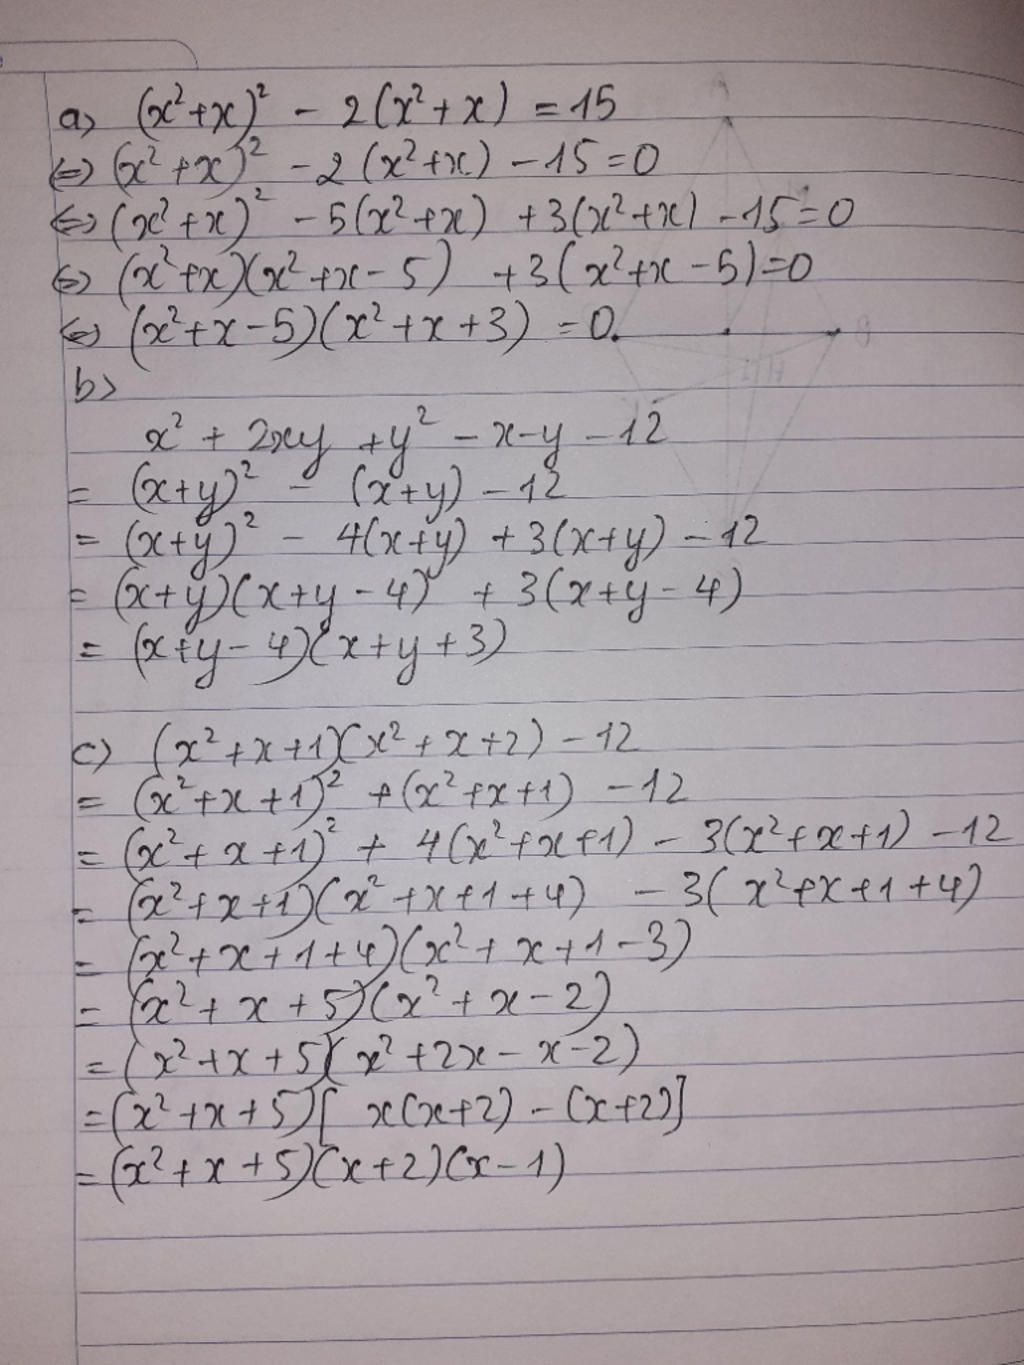 a) (x²+x)² - 2(x²+x) = 15
⇔ (x²+x)² - 2(x²+x) - 15 = 0
⇔ (x²+x)² - 5(x²+x) + 3(x²+x) - 15 = 0
⇔ (x²+x)(x²+x-5) + 3(x²+x-5) = 0
⇔ (x²+x-5)(x²+x+3) = 0.
b)
x² + 2xy + y² - x - y - 12
= (x+y)² - (x+y) - 12
= (x+y)² - 4(x+y) + 3(x+y) - 12
= (x+y)(x+y-4) + 3(x+y-4)
= (x+y-4)(x+y+3)
c) (x²+x+1)(x²+x+2) - 12
= (x²+x+1)² + (x²+x+1) - 12
= (x²+x+1)² + 4(x²+x+1) - 3(x²+x+1) - 12
= (x²+x+1)(x²+x+1+4) - 3(x²+x+1+4)
= (x²+x+1+4)(x²+x+1-3)
= (x²+x+5)(x²+x-2)
= (x²+x+5)(x²+2x-x-2)
= (x²+x+5)[x(x+2) - (x+2)]
= (x²+x+5)(x+2)(x-1)